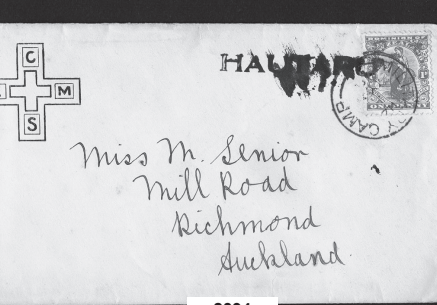 C
M
S
HAUTAPU
Y CAMP
Miss M. Senior
Mill Road
Richmond
Auckland.